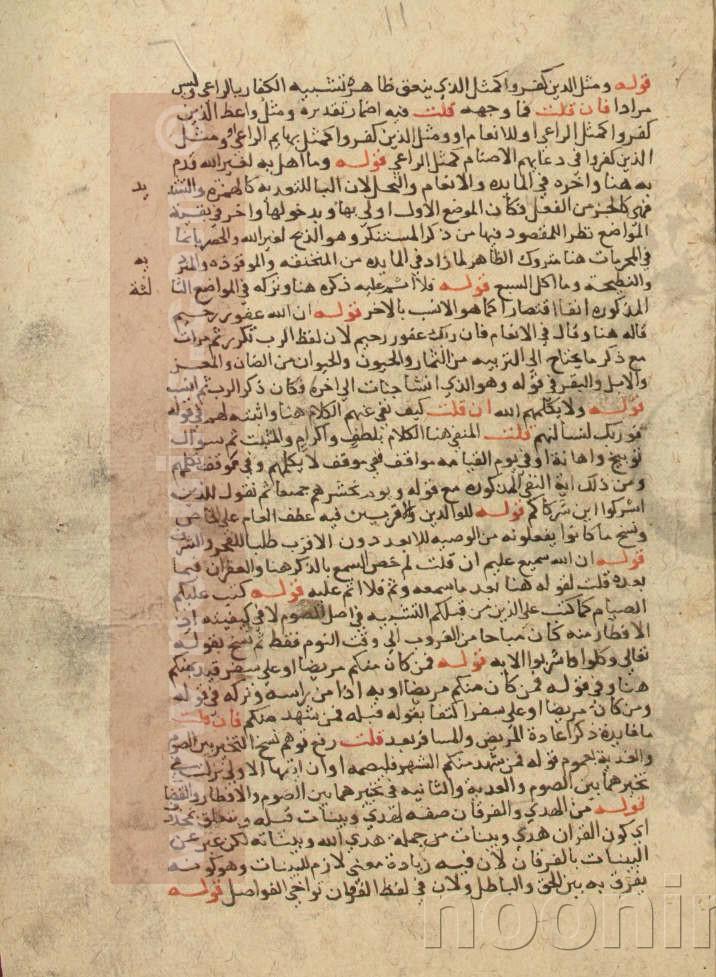 قوله ومثل الذين كفروا كمثل الذي ينعق ظاهره تشبيه الكفار بالراعي وليس
مرادا فان قلت فما وجهه قلت فيه اضمار تقديره ومثل واعظ الذين
كفروا كمثل الراعي او للانعام او ومثل الذين كفروا كمثل بهايم الراعي او ومثل
الذين كفروا في دعايهم الاصنام كمثل الراعي قوله وما اهل به لغير الله قدم
به هنا واخره في المايده والانعام والنحل لان البا للتعديه كالهمزه والتشد
يد
فهي كالجزء من الفعل فكان الموضع الاول اولى بها وبدخولها واخر في بقية
المواضع نظرا للمقصود فيها من ذكر المستنكر وهو الذبح لغير الله والحصر بانما
في المحرمات هنا متروك الظاهر لما زاد في المايده من المنخنقه والموقوذه والمتر
به
والنطيحة وما اكل السبع قوله فلا اثم عليه ذكره هنا وتركه في المواضع الثا
لثة
المذكوره انفا اقتصارا كما هو الانسب بالاخر قوله ان الله غفور رحيم
قاله هنا وقال في الانعام فان ربك غفور رحيم لان لفظ الرب تكرر ثم مرات
مع ذكر ما يحتاج الى التربيه من الثمار والحبوب والحيوان من الضان والمعز
والابل والبقر في قوله وهو الذي انشا جنات الى اخره فكان ذكر الرب ثم انسب
قوله ولا يكلمهم الله ان قلت كيف نفي عنهم الكلام هنا واثبته لهم في قوله
فوربك لنسالنهم قلت المنفي هنا الكلام بلطف واكرام والمثبت ثم سوال
توبيخ واهانة او في يوم القيامه مواقف ففي موقف لا يكلمهم وفي موقف يكلمهم
ومن ذلك اية النفي المذكوره مع قوله ويوم نحشرهم جميعا ثم نقول للذين
اشركوا اين شركاكم قوله للوالدين والاقربين فيه عطف العام على الخاص
ونسخ ما كانوا يفعلونه من الوصيه للابعد دون الاقرب طلبا للفخر والشرف
قوله ان الله سميع عليم ان قلت لم خص السمع بالذكر هنا والغفران فيما
بعده قلت لقوله هنا بعد ما سمعه وثم فلا اثم عليه قوله كتب عليكم
الصيام كما كتب على الذين من قبلكم التشبيه في اصل الصوم لا في كيفيته اذ
الافطار منه كان مباحا من الغروب الى وقت النوم فقط ثم نسخ بقوله
تعالى وكلوا واشربوا الايه قوله فمن كان منكم مريضا او على سفر قيد بمنكم
هنا وفي قوله فمن كان منكم مريضا او به اذا من راسه وتركه في قوله
ومن كان مريضا او على سفر اكتفا بقوله قبله فمن شهد منكم فان قلت
ما فايدة ذكر اعادة المريض والمسافر بعد قلت رفع توهم نسخ التخيير بين الصوم
والفدية بعموم قوله فمن شهد منكم الشهر فليصمه او ان ايتها الاولى نزلت في
تخييرهما بين الصوم والفدية والثانيه في تخييرهما بين الصوم والافطار والقضا
قوله من الهدي والفرقان صفه لهدي وبينات قبله ومتعلق بمحذوف
اي كون القران هدي وبينات من جملة هدي الله وبيناته لكن عبر عن
البينات بالفرقان لان فيه زيادة معنى لازم للبينات وهو كونه
يفرق به بين الحق والباطل ولان في لفظ الفرقان تواخي الفواصل قوله
noonin